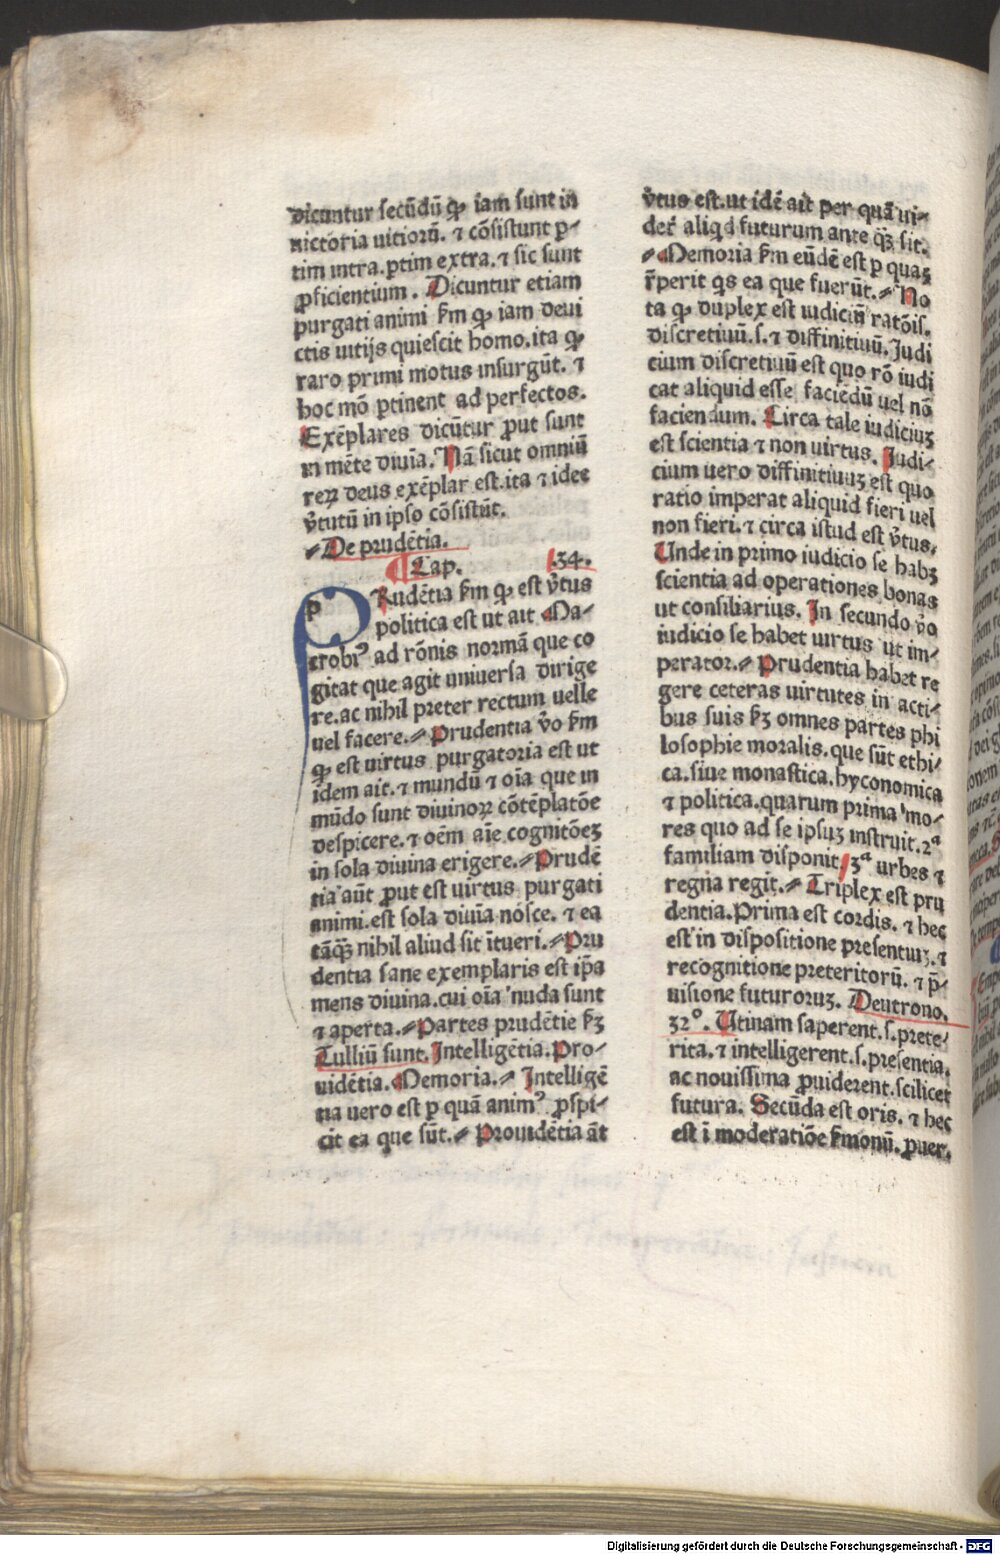 dicuntur secũdũ ꝙ iam sunt in
uictoria uitiorũ. ⁊ cõsistunt p-
tim intra. ꝑtim extra. ⁊ sic sunt
ꝓficientium. Dicuntur etiam
purgati animi ẜm ꝙ iam deui
ctis uitijs quiescit homo. ita ꝙ
raro primi motus insurgũt. ⁊
hoc mõ ꝑtinent ad perfectos.
Exẽplares dicũtur ꝓut sunt
in mẽte diuĩa. Nã sicut omniũ
reꝝ deus exẽplar est. ita ⁊ idee
v̾tutũ in ipso cõsistũt.
De prudẽtia.
¶ Cap. .34.
pRudẽtia ẜm ꝙ est v̾tus
politica est ut ait Ma-
crobiꝰ ad rõnis normã que co
gitat que agit uniuersa dirige
re. ac nihil preter rectum uelle
uel facere. Prudentia v̾o ẜm
ꝙ est uirtus purgatoria est ut
idem ait. ⁊ mundũ ⁊ oĩa que in
mũdo sunt diuinoꝝ cõtẽplatõe
despicere. ⁊ oẽm aĩe cognitõeꝫ
in sola diuina erigere. Prudẽ
tia aũt ꝓut est uirtus purgati
animi. est sola diuĩa nosce. ⁊ ea
tãqꝫ̃ nihil aliud sit ĩtueri. Pru
dentia sane exemplaris est ip̃a
mens diuina. cui oĩa nuda sunt
⁊ aperta. Partes prudẽtie ẜꝫ
Tulliũ sunt. Intelligẽtia. Pro-
uidẽtia. Memoria. Intelligẽ
tia uero est ꝑ quã animꝰ ꝓspi-
cit ea que sũt. Prouidẽtia ãt
v̾tus est. ut idẽ ait per quã ui-
det̃ aliqd futurum ante qꝫ̃ sit.
Memoria ẜm eũdẽ est ꝑ quaꝫ
r̃perit qs ea que fuerũt. No
ta ꝙ duplex est iudiciũ ratõis.
discretiuũ. s. ⁊ diffinitiuũ. Judi
cium discretiuũ est quo rõ iudi
cat aliquid esse faciẽdũ uel nõ
faciendum. Circa tale iudiciuꝫ
est scientia ⁊ non uirtus. Judi-
cium uero diffinitiuuꝫ est quo
ratio imperat aliquid fieri uel
non fieri. ⁊ circa istud est v̾tus.
Unde in primo iudicio se habꝫ
scientia ad operationes bonas
ut consiliarius. In secundo v̾o
iudicio se habet uirtus ut im-
perator. Prudentia habet re
gere ceteras uirtutes in acti-
bus suis ẜꝫ omnes partes phi
losophie moralis. que sũt ethi-
ca. siue monastica. hyconomica
⁊ politica. quarum prima mo-
res quo ad se ipsuꝫ instruit. 2ª
familiam disponit. 3ª urbes ⁊
regna regit. Triplex est pru
dentia. Prima est cordis. ⁊ hec
est in dispositione presentuꝫ. ⁊
recognitione preteritorũ. ⁊ p̃-
uisione futuroruꝫ. Deutrono.
32º. Utinam saperent. s. prete-
rita. ⁊ intelligerent. s. presentia.
ac nouissima ꝓuiderent. scilicet
futura. Secũda est oris. ⁊ hec
est ĩ moderatiõe ẜmonũ. ꝓuer.
Digitalisierung gefördert durch die Deutsche Forschungsgemeinschaft - DFG